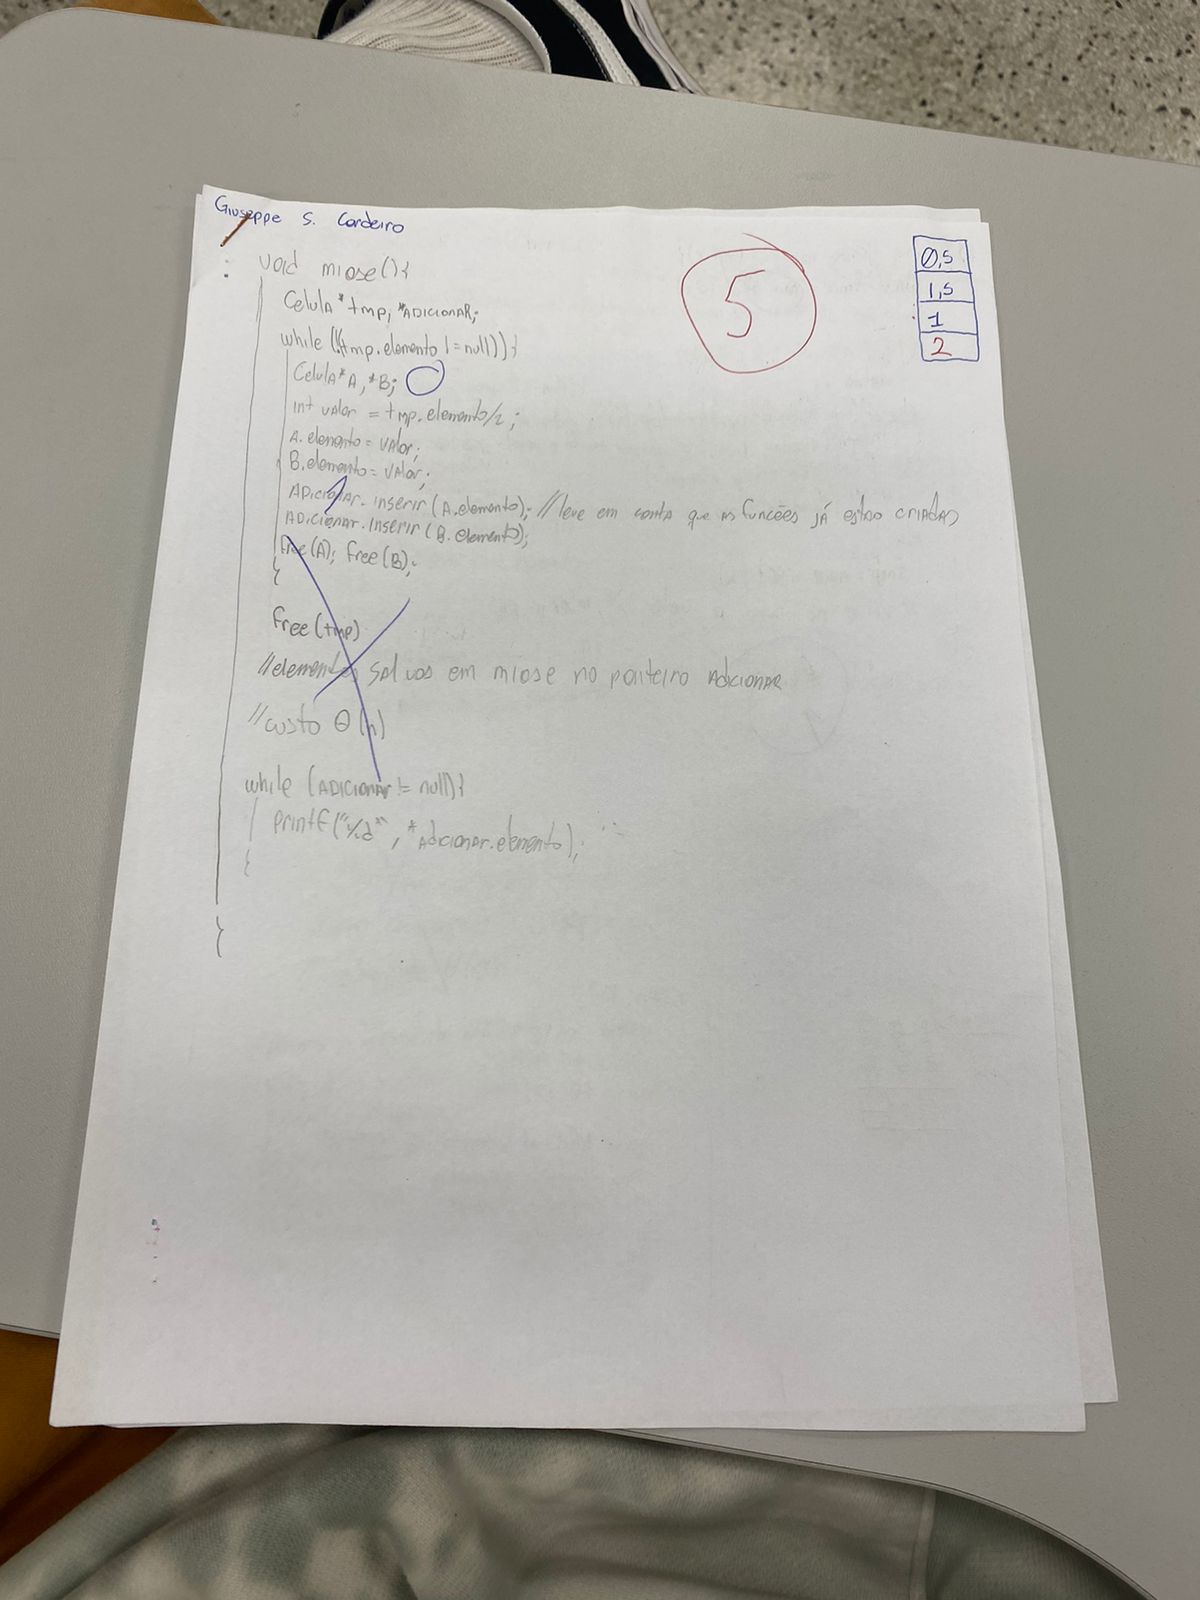 Giuseppe S. Cordeiro
5
0,5
1,5
1
2
void miose(){
Celula *tmp, *ADICIONAR;
while (!(tmp.elemento != null)){
Celula *A, *B;
int valor = tmp.elemento/2;
A.elemento = valor;
B.elemento = valor;
ADICIONAR.inserir(A.elemento); //leve em conta que as funcões já estao criadas
ADICIONAR.inserir(B.elemento);
free(A); free(B);
}
free(tmp)
//elementos salvos em miose no ponteiro ADICIONAR
//custo Θ(n)
while (ADICIONAR != null){
printf("%d", *ADICIONAR.elemento);
}
}